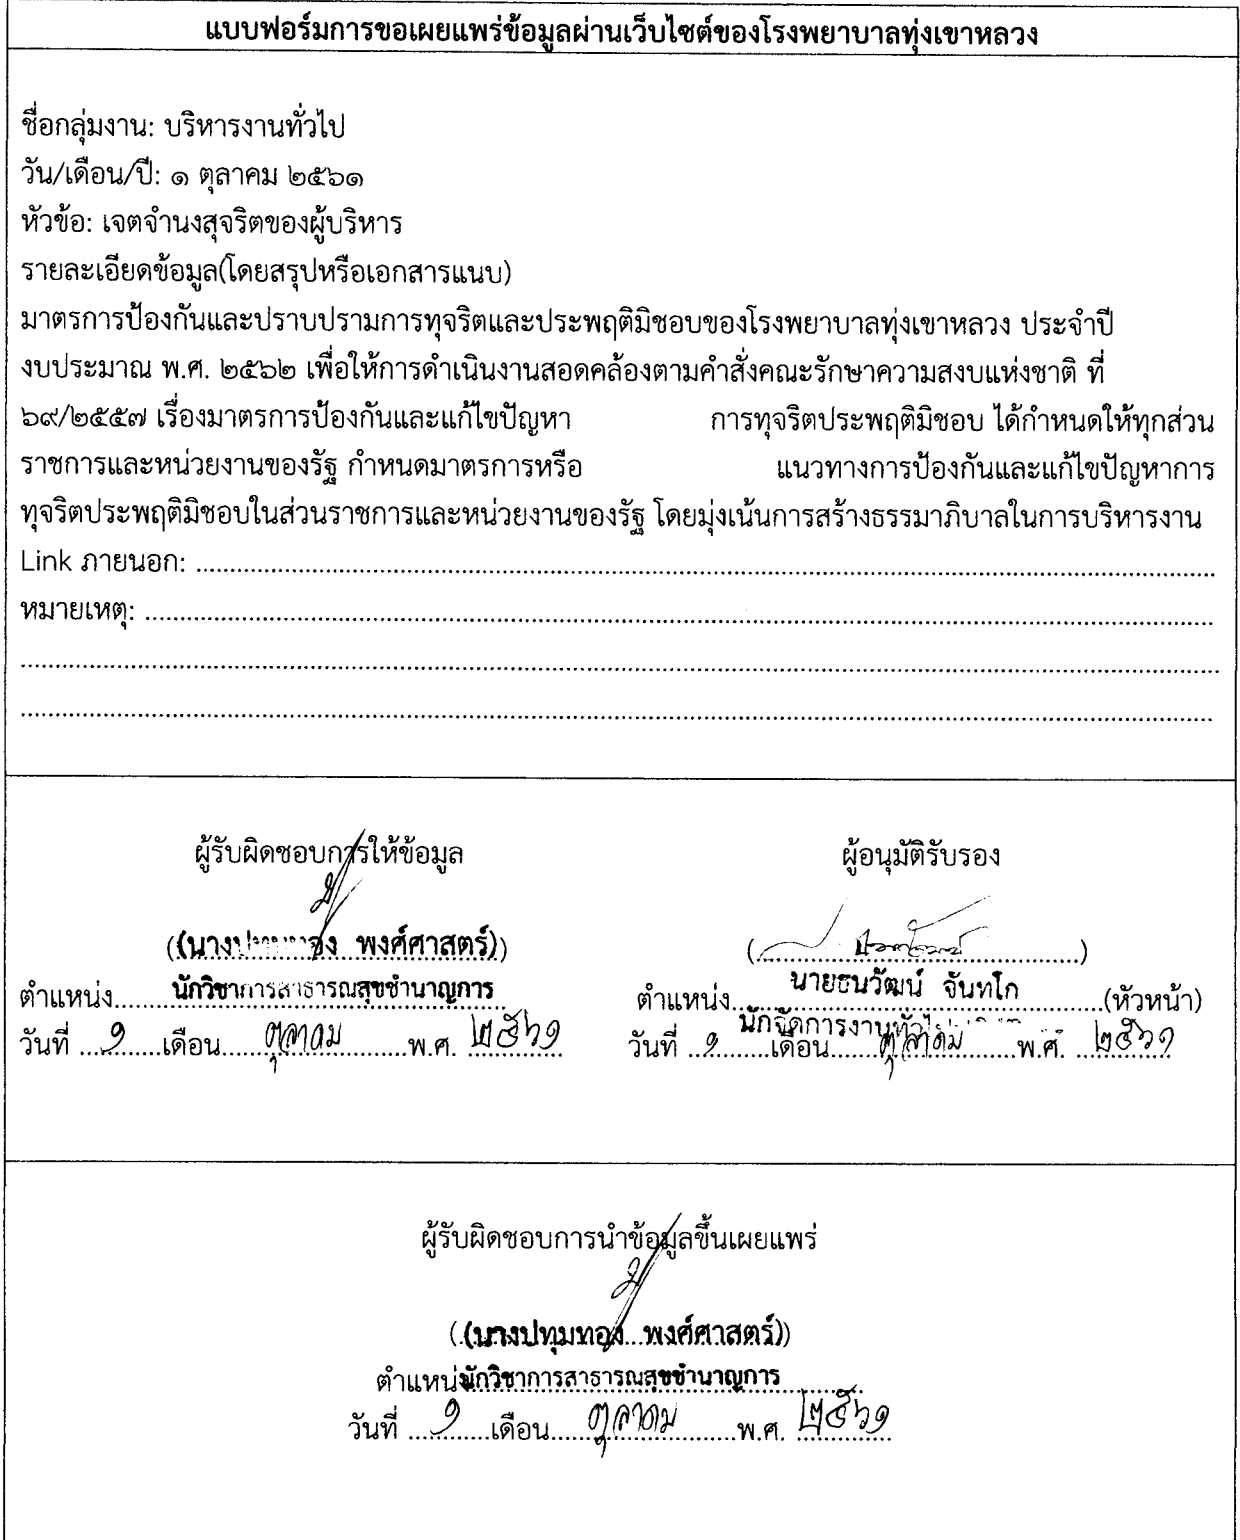 แบบฟอร์มการขอเผยแพร่ข้อมูลผ่านเว็บไซต์ของโรงพยาบาลทุ่งเขาหลวง
ชื่อกลุ่มงาน: บริหารงานทั่วไป
วัน/เดือน/ปี: ๑ ตุลาคม ๒๕๖๑
หัวข้อ: เจตจำนงสุจริตของผู้บริหาร
รายละเอียดข้อมูล(โดยสรุปหรือเอกสารแนบ)
มาตรการป้องกันและปราบปรามการทุจริตและประพฤติมิชอบของโรงพยาบาลทุ่งเขาหลวง ประจำปี
งบประมาณ พ.ศ. ๒๕๖๒ เพื่อให้การดำเนินงานสอดคล้องตามคำสั่งคณะรักษาความสงบแห่งชาติ ที่
๖๙/๒๕๕๗ เรื่องมาตรการป้องกันและแก้ไขปัญหา การทุจริตประพฤติมิชอบ ได้กำหนดให้ทุกส่วน
ราชการและหน่วยงานของรัฐ กำหนดมาตรการหรือ แนวทางการป้องกันและแก้ไขปัญหาการ
ทุจริตประพฤติมิชอบในส่วนราชการและหน่วยงานของรัฐ โดยมุ่งเน้นการสร้างธรรมาภิบาลในการบริหารงาน
Link ภายนอก: ........................................
หมายเหตุ: ........................................
ผู้รับผิดชอบการให้ข้อมูล ผู้อนุมัติรับรอง
((นางปทุมทอง พงศ์ศาสตร์))
ตำแหน่ง นักวิชาการสาธารณสุขชำนาญการ
วันที่ ๑ เดือน ตุลาคม พ.ศ. ๒๕๖๑
นายธนวัฒน์ จันทโก
ตำแหน่ง (หัวหน้า)
นักจัดการงานทั่วไป
วันที่ ๑ เดือน ตุลาคม พ.ศ. ๒๕๖๑
ผู้รับผิดชอบการนำข้อมูลขึ้นเผยแพร่
((นางปทุมทอง พงศ์ศาสตร์))
ตำแหน่ง นักวิชาการสาธารณสุขชำนาญการ
วันที่ ๑ เดือน ตุลาคม พ.ศ. ๒๕๖๑